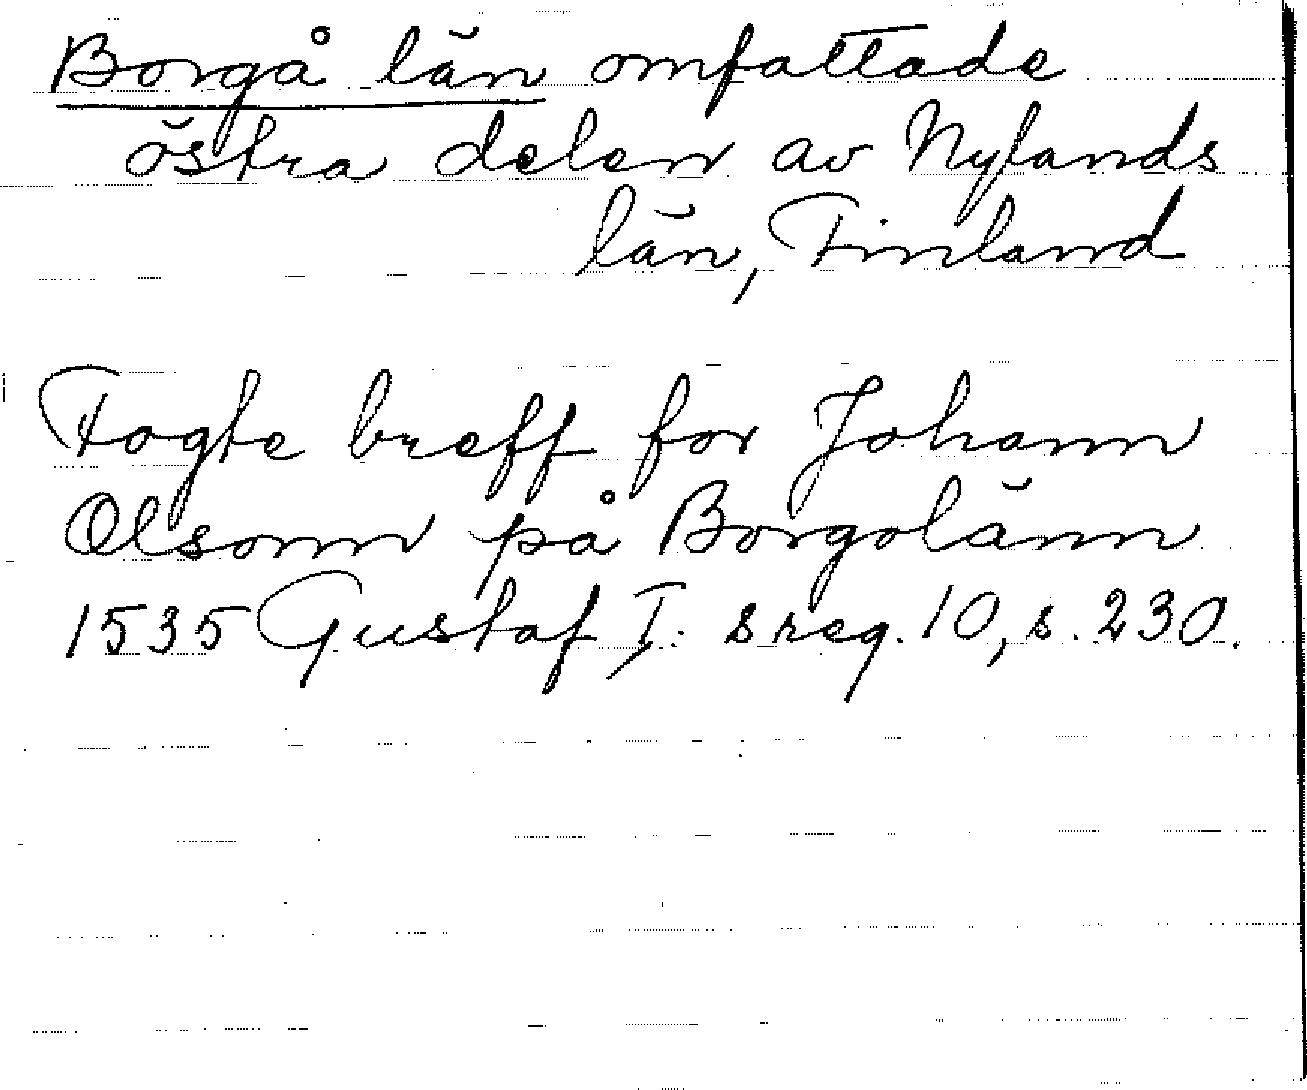 Borgå län omfattade
östra delen av Nylands
län, Finland
Fogte breff for Johann
Olsonn på Borgolänn
1535 Gustaf I: s reg. 10, s. 230.